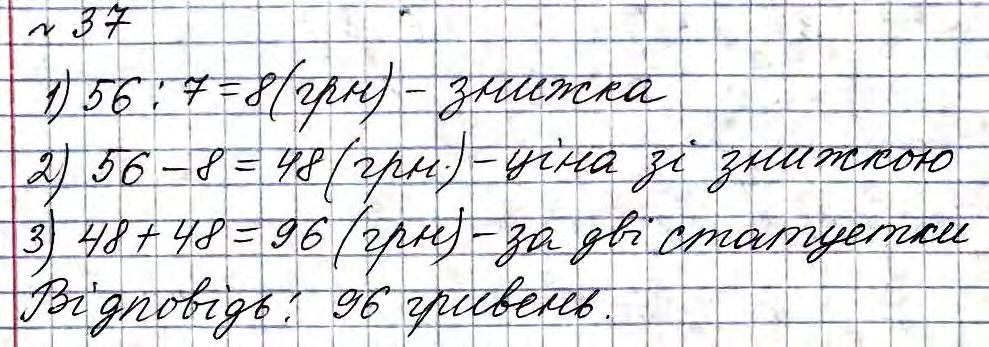 ~ 37
1) 56 : 7 = 8 (грн) - знижка
2) 56 - 8 = 48 (грн.) - ціна зі знижкою
3) 48 + 48 = 96 (грн) - за дві статуетки
Відповідь: 96 гривень.